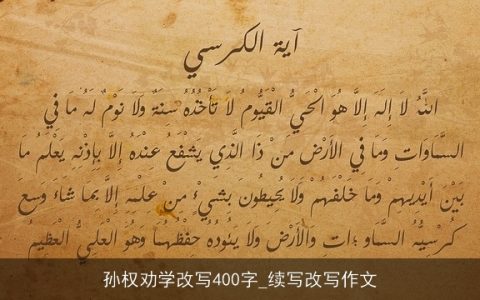 آية الكرسي
اللَّهُ لَا إِلَهَ إِلَّا هُوَ الْحَيُّ الْقَيُّومُ لَا تَأْخُذُهُ سِنَةٌ وَلَا نَوْمٌ لَهُ مَا فِي
السَّمَاوَاتِ وَمَا فِي الْأَرْضِ مَنْ ذَا الَّذِي يَشْفَعُ عِنْدَهُ إِلَّا بِإِذْنِهِ يَعْلَمُ مَا
بَيْنَ أَيْدِيهِمْ وَمَا خَلْفَهُمْ وَلَا يُحِيطُونَ بِشَيْءٍ مِنْ عِلْمِهِ إِلَّا بِمَا شَاءَ وَسِعَ
كُرْسِيُّهُ السَّمَاو ؛اتِ وَالْأَرْضَ وَلَا يَئُودُهُ حِفْظُهُمَا وَهُوَ الْعَلِيُّ الْعَظِيمُ
孙权劝学改写400字_续写改写作文